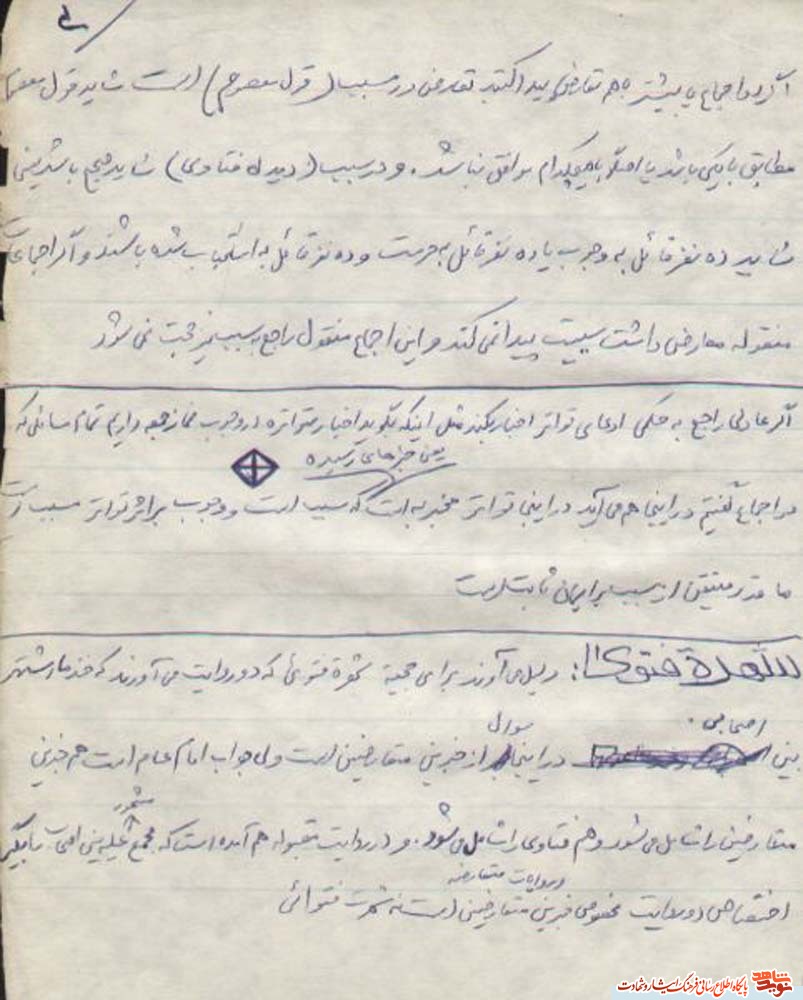 اگر دو اجماع یا بیشتر با هم تعارض پیدا کنند تعارض در مسبب (قول معصوم) است شاید قول معصوم
مطابق با یکی باشد یا اصلاً با هیچکدام موافق نباشد. و در سبب (دیده فتاوی) شاید صحیح باشد یعنی
شاید ده نفر قائل به وجوب یا ده نفر قائل به حرمت و ده نفر قائل به استحباب شده باشند و اگر اجماعات
منقوله معارض داشت سببیت پیدا نمی کند و این اجماع منقول راجع به سبب نیز حجت نمی شود
اگر عادلی راجع به حکمی ادعای تواتر اخبار بکند مثل اینکه بگوید اخبار متواتره در وجوب نماز جمعه داریم تمام مسائلی که
یعنی خبرهای رسیده
در اجماع گفتیم در اینجا هم می آید در اینجا تواتر مخبر به است که سبب است و وجوب براثر تواتر مسبب است
ما قدر متیقن از سبب برایمان ثابت است
شهرة فتوی: دلیل می آورند برای حجیة شهرة فتوی که دو روایت می آورند که خذ ما اشتهر
بین اصحابی. در اینجا سوال از خبرین متعارضین است ولی جواب امام عام است هم خبرین
متعارضین را شامل می شود و هم فتاوی را شامل می شود. و در روایت مقبوله هم آمده است که مجمع علیه مشهور بین اصحاب را بگیر
اختصاص دو روایت بخصوص خبرین و روایات متعارضه متعارضین است نه شهرت فتوائی
نوید شاهد
پایگاه اطلاع رسانی فرهنگ ایثار و شهادت